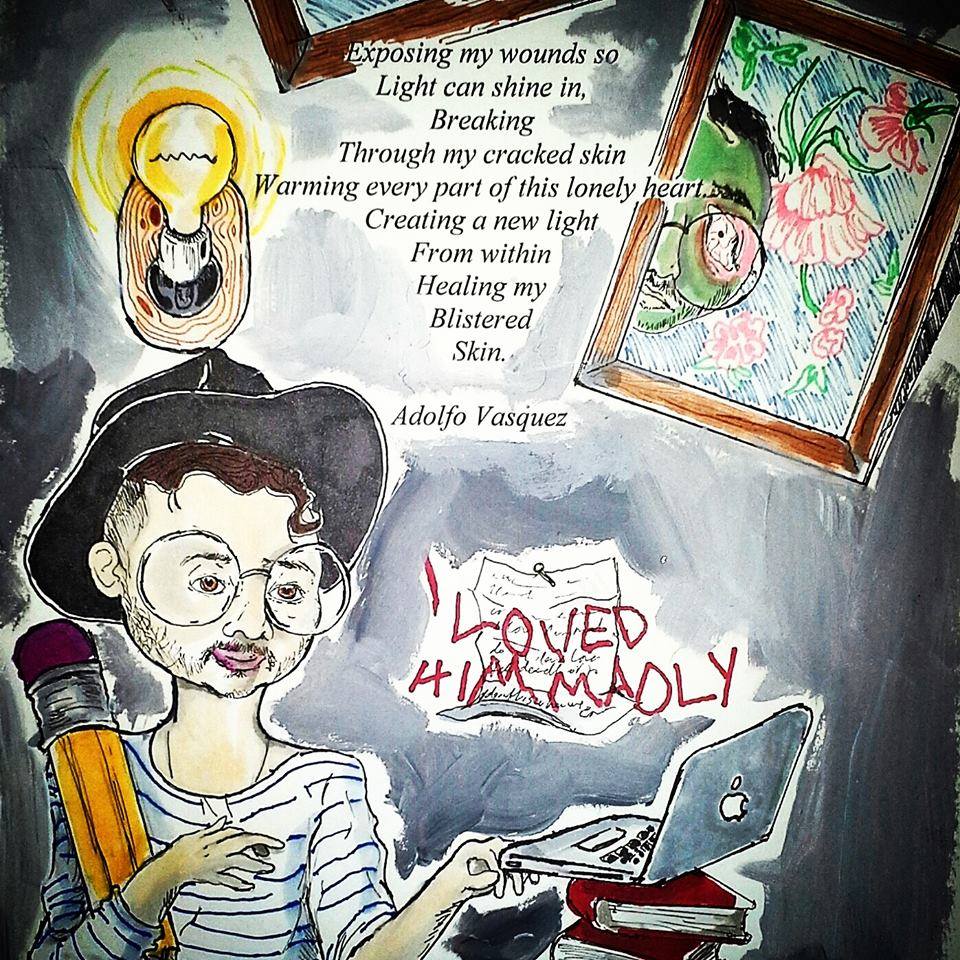 Exposing my wounds so
Light can shine in,
Breaking
Through my cracked skin
Warming every part of this lonely heart..
Creating a new light
From within
Healing my
Blistered
Skin.
Adolfo Vasquez
I LOVED
HIM MADLY